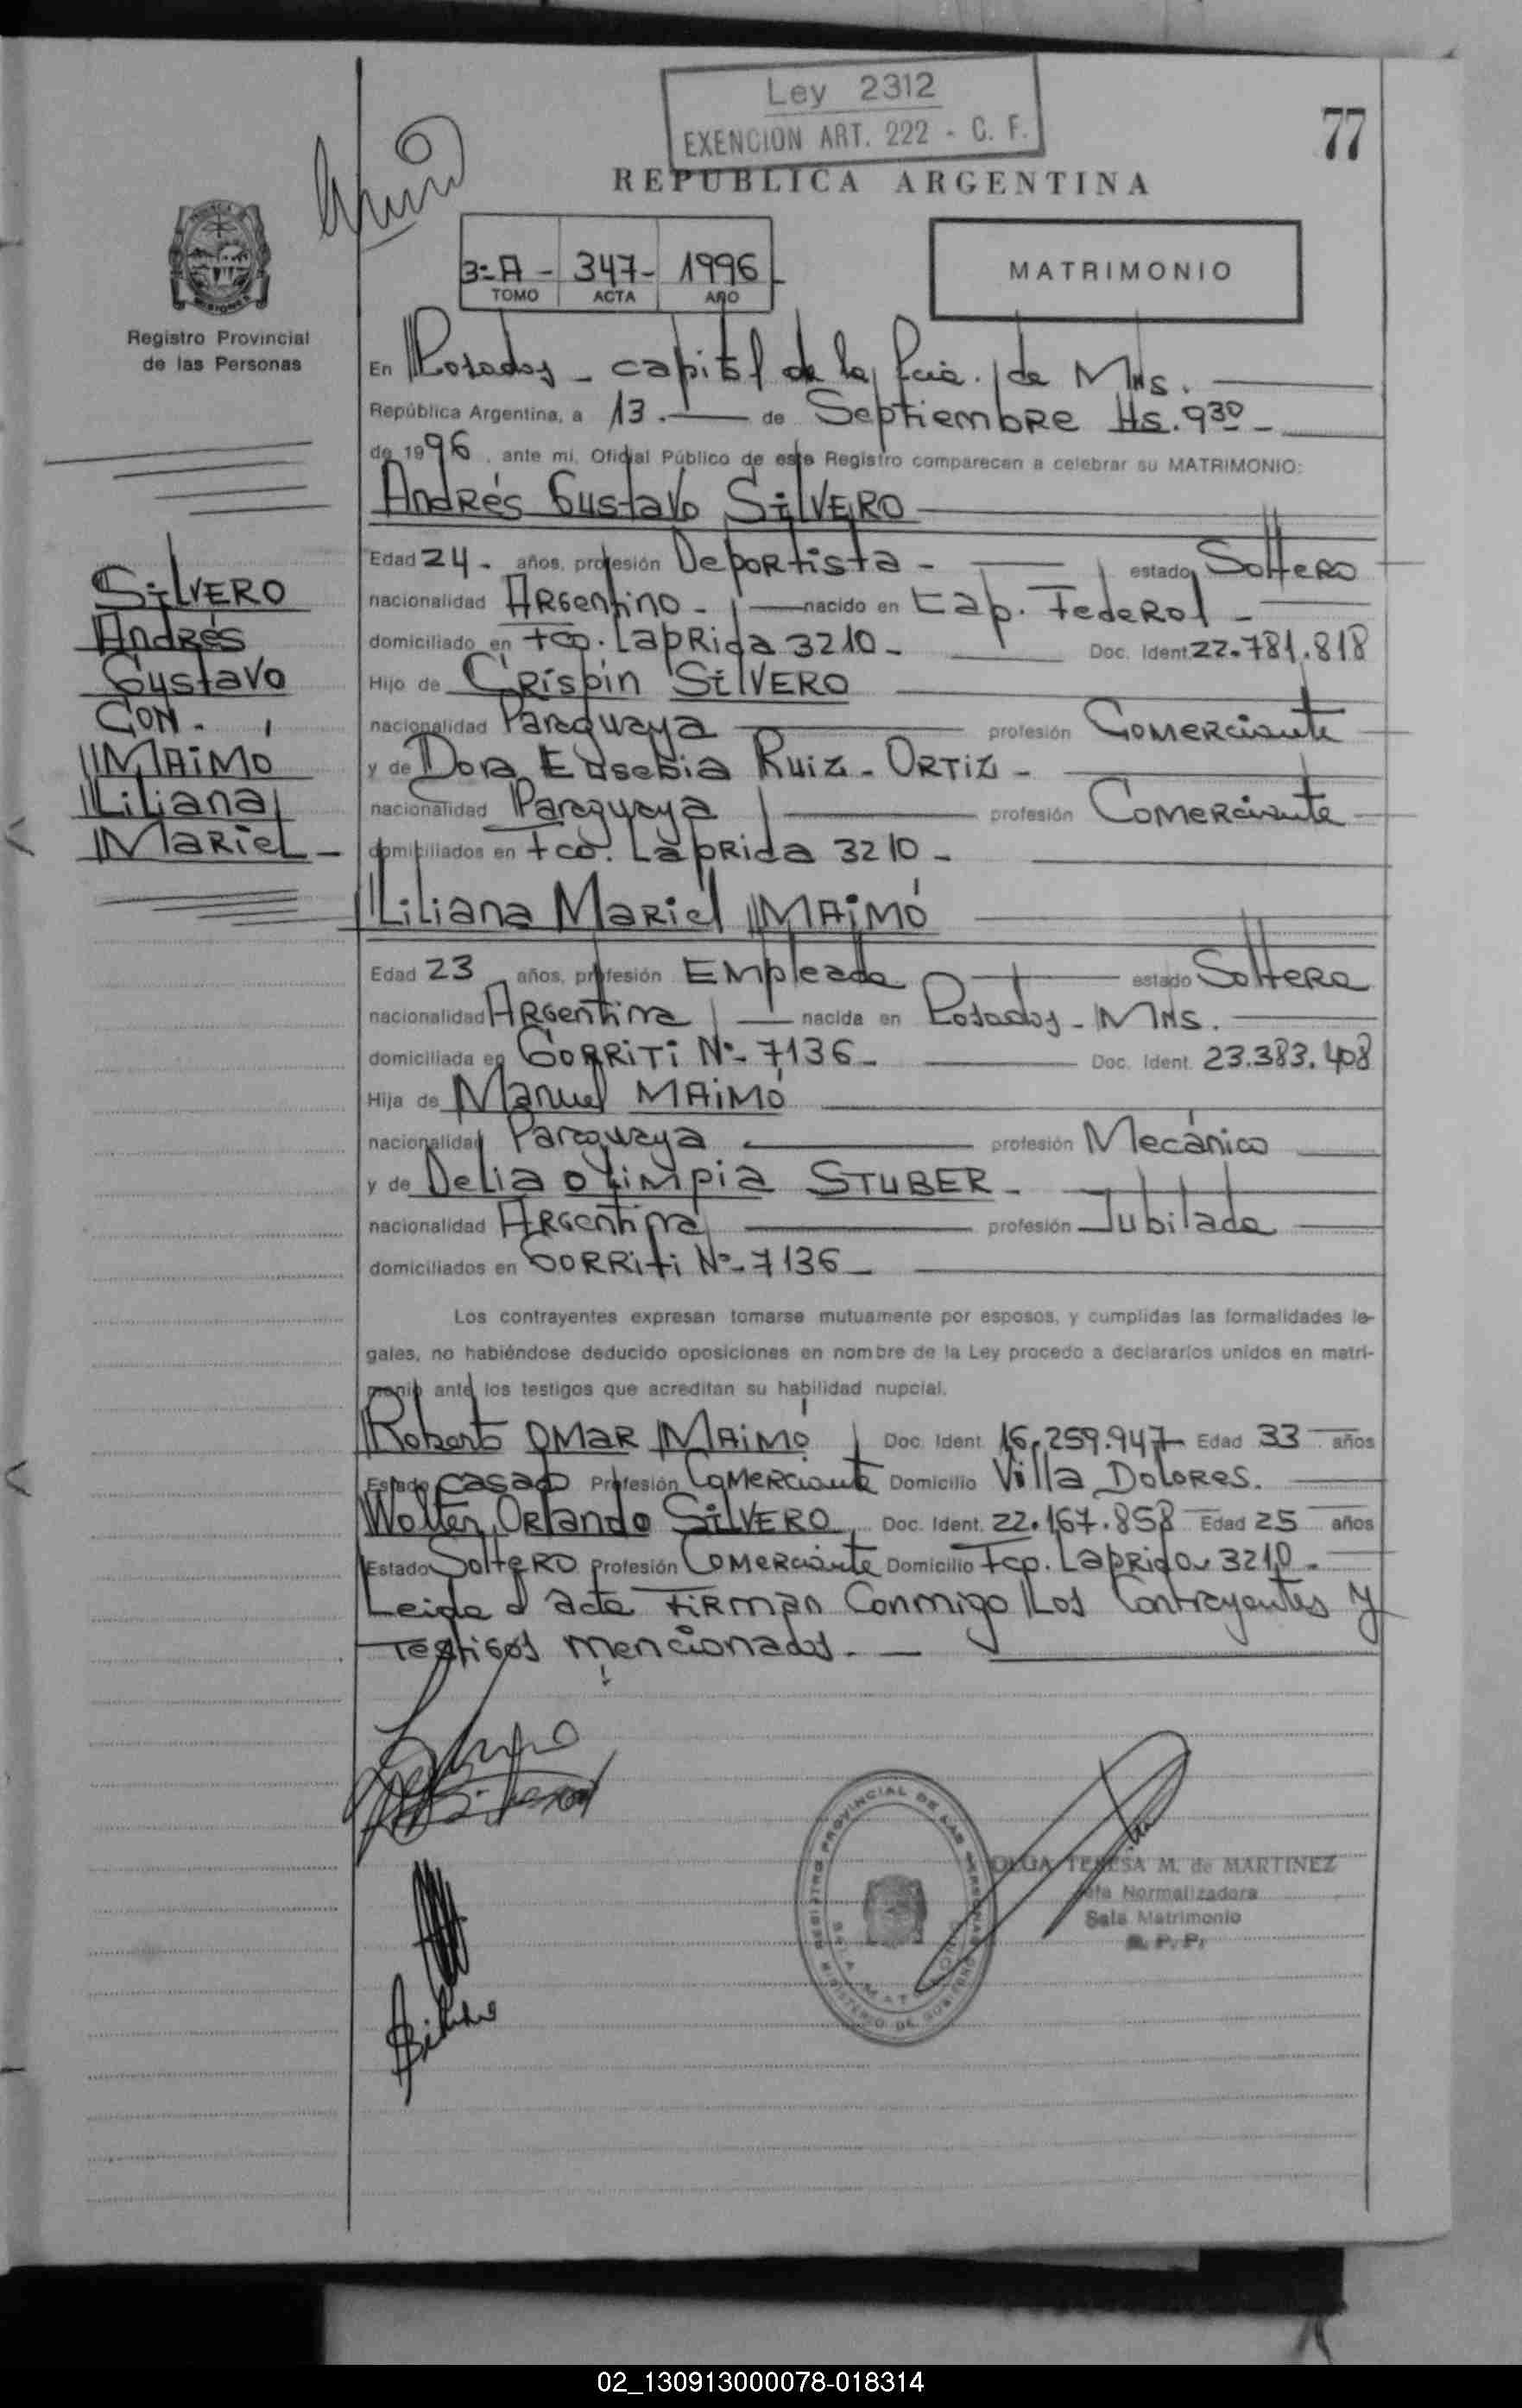 Ley 2312
EXENCION ART. 222 - C. F.
77
REPUBLICA ARGENTINA
3=A - 347- 1996
TOMO ACTA AÑO
MATRIMONIO
Registro Provincial
de las Personas
En Posadas - capital de la Pcia. de Mnes.
República Argentina, a 13. de Septiembre Hs. 930 -
de 1996, ante mi, Oficial Público de este Registro comparecen a celebrar su MATRIMONIO:
Andrés Gustavo SILVERO
Edad 24 - años, profesión Deportista - estado Soltero
nacionalidad Argentino - nacido en Cap. Federal -
domiciliado en Fco. Laprida 3210 - Doc. Ident. 22.781.818
Hijo de Crispín SILVERO
nacionalidad Paraguaya profesión Comerciante
y de Dora Eusebia Ruiz - ORTIZ -
nacionalidad Paraguaya profesión Comerciante
domiciliados en Fco. Laprida 3210 -
SILVERO
Andrés
Gustavo
CON -
MAIMÓ
Liliana
Mariel -
Liliana Mariel MAIMÓ
Edad 23 años, profesión Empleada estado Soltera
nacionalidad Argentina nacida en Posadas - Mnes.
domiciliada en GORRITI Nº- 7136 - Doc. Ident. 23.383.408
Hija de Manuel MAIMÓ
nacionalidad Paraguaya profesión Mecánico
y de Delia Olimpia STUBER -
nacionalidad Argentina profesión Jubilada
domiciliados en GORRITI Nº- 7136 -
Los contrayentes expresan tomarse mutuamente por esposos, y cumplidas las formalidades le-
gales, no habiéndose deducido oposiciones en nombre de la Ley procedo a declararlos unidos en matri-
monio ante los testigos que acreditan su habilidad nupcial.
Roberto OMAR MAIMÓ Doc. Ident. 16.259.947 Edad 33 años
Estado casado Profesión Comerciante Domicilio Villa Dolores.
Walter Orlando SILVERO Doc. Ident. 22.167.858 Edad 25 años
Estado Soltero Profesión Comerciante Domicilio Fco. Laprida 3210 -
Leida el acta Firman Conmigo Los Contrayentes y
Testigos mencionados. -
REGISTRO PROVINCIAL DE LAS PERSONAS
MINISTERIO DE GOBIERNO
OLGA TERESA M. de MARTINEZ
Jefa Normalizadora
Sala Matrimonio
R. P. P.
02_130913000078-018314